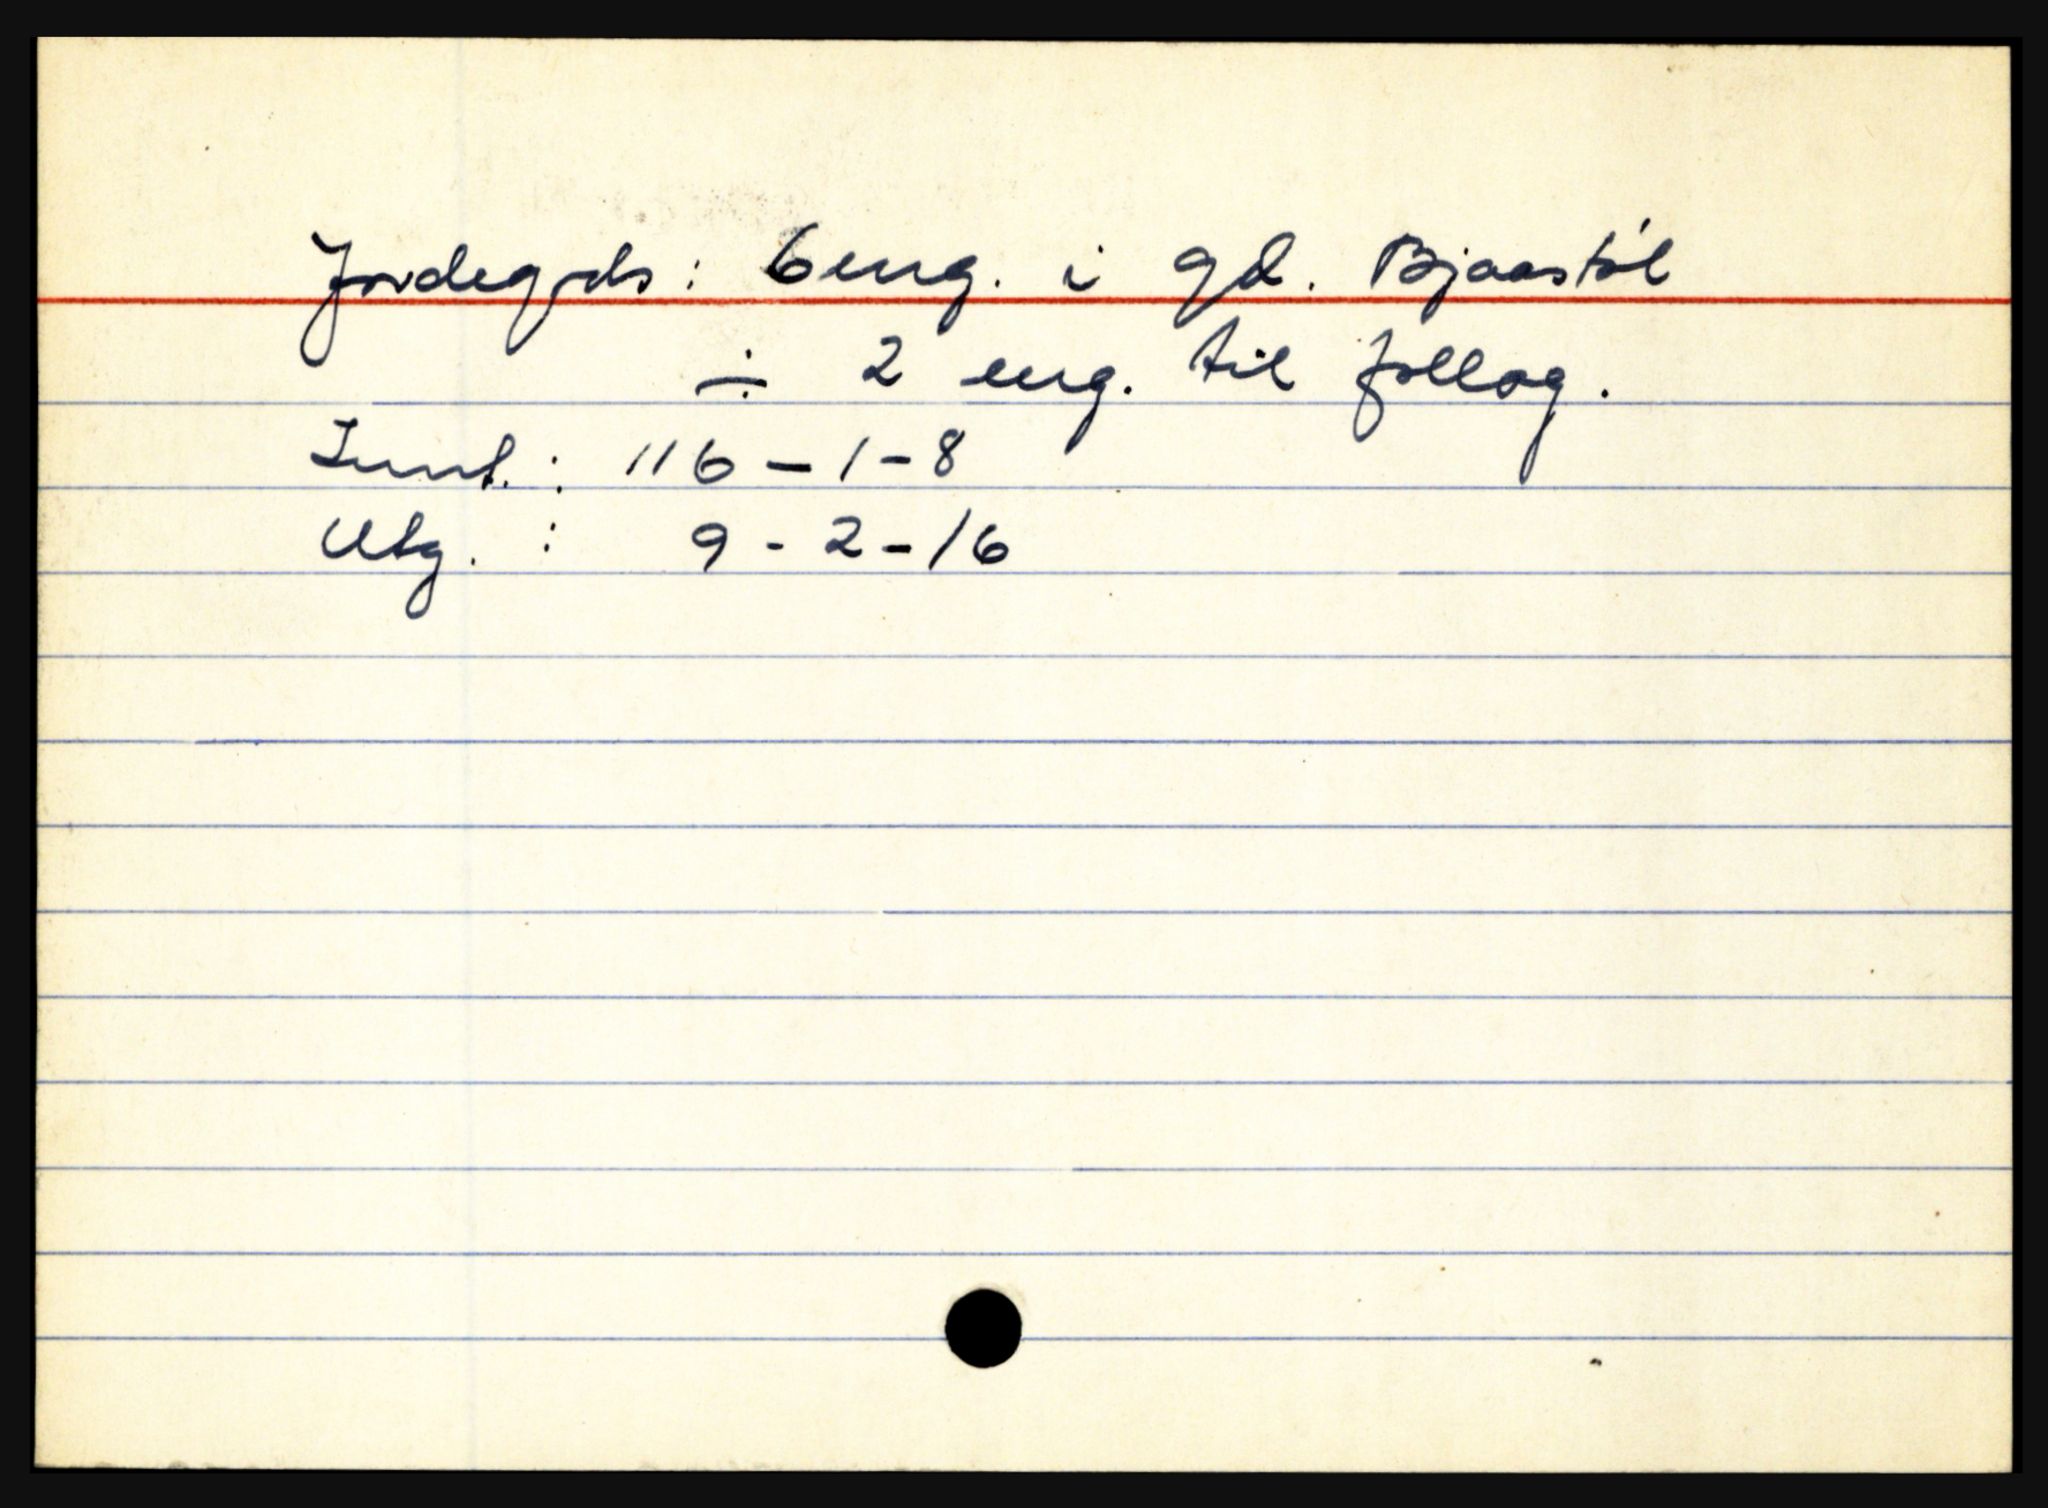 Jordegods: 6 eng. i gd. Bjaastøl
÷ 2 eng. til føllog.
Innt. : 116 - 1 - 8
Utg. : 9 - 2 - 16